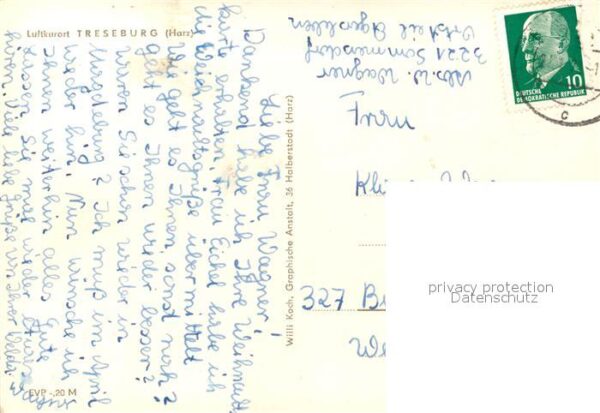 Luftkurort TRESEBURG (Harz)
Liebe Frau Wagner!
Dankend habe ich Ihre Weihnachts
karte erhalten, Frau Eichel habe ich
die Weihnachtsgrüße übermittelt
Wie geht es Ihnen sonst noch?
geht es Ihnen wieder besser?
waren Sie schon wieder in
Magdeburg? Ich muß im April
wieder hin. Nun wünsche ich
Ihnen weiterhin alles Gute
lassen Sie mal wieder etwas
hören. Viele liebe Grüße von Ihrer
EVP -,20 M
Willi Koch, Graphische Anstalt, 36 Halberstadt (Harz)
Abs. U. Wagner
3221 Sommersdorf
Ortsteil
10
DEUTSCHE
DEMOKRATISCHE REPUBLIK
c
Frau
327 Bu
privacy protection
Datenschutz